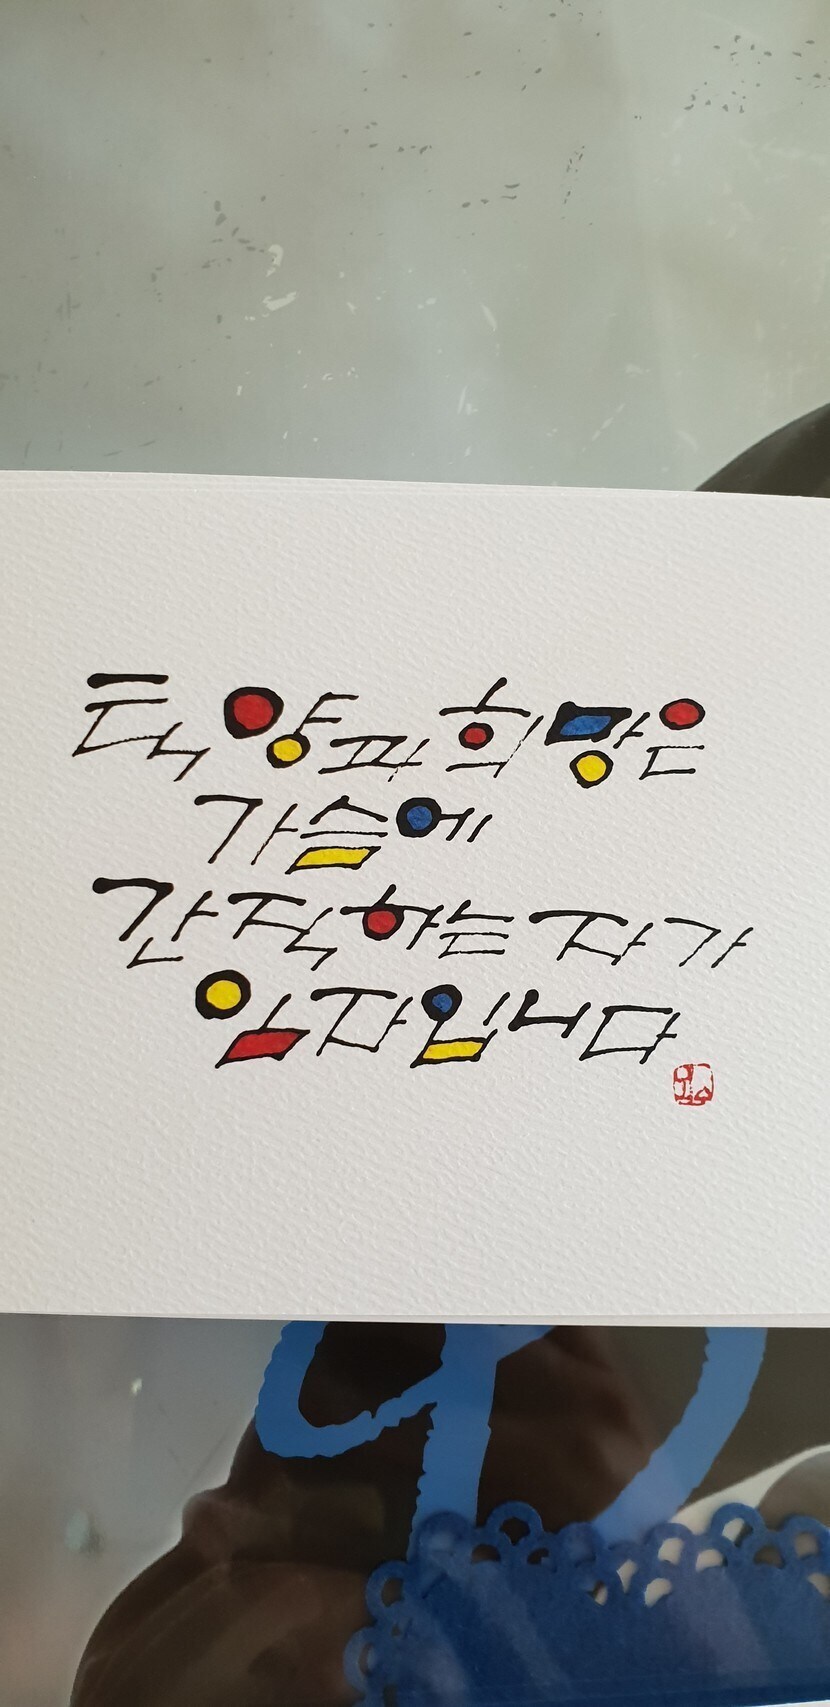 태양과 희망은
가슴에
간직하는 자가
임자입니다